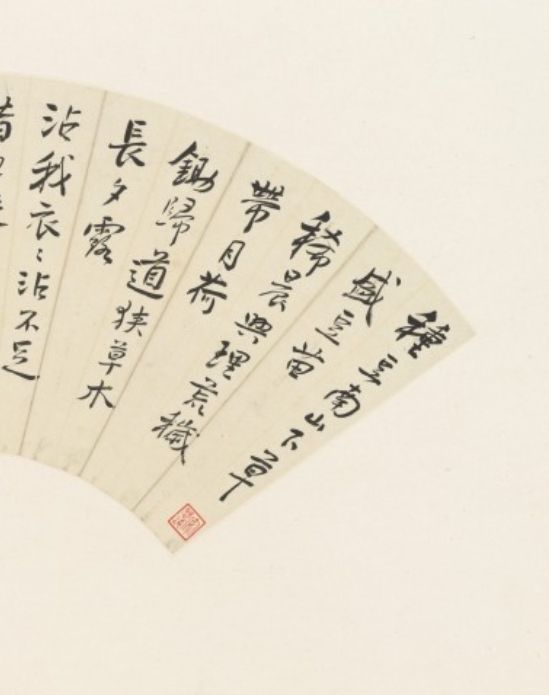 種豆南山下草
盛豆苗
稀晨興理荒穢
帶月荷
鋤歸道狹草木
長夕露
沾我衣〻沾不足